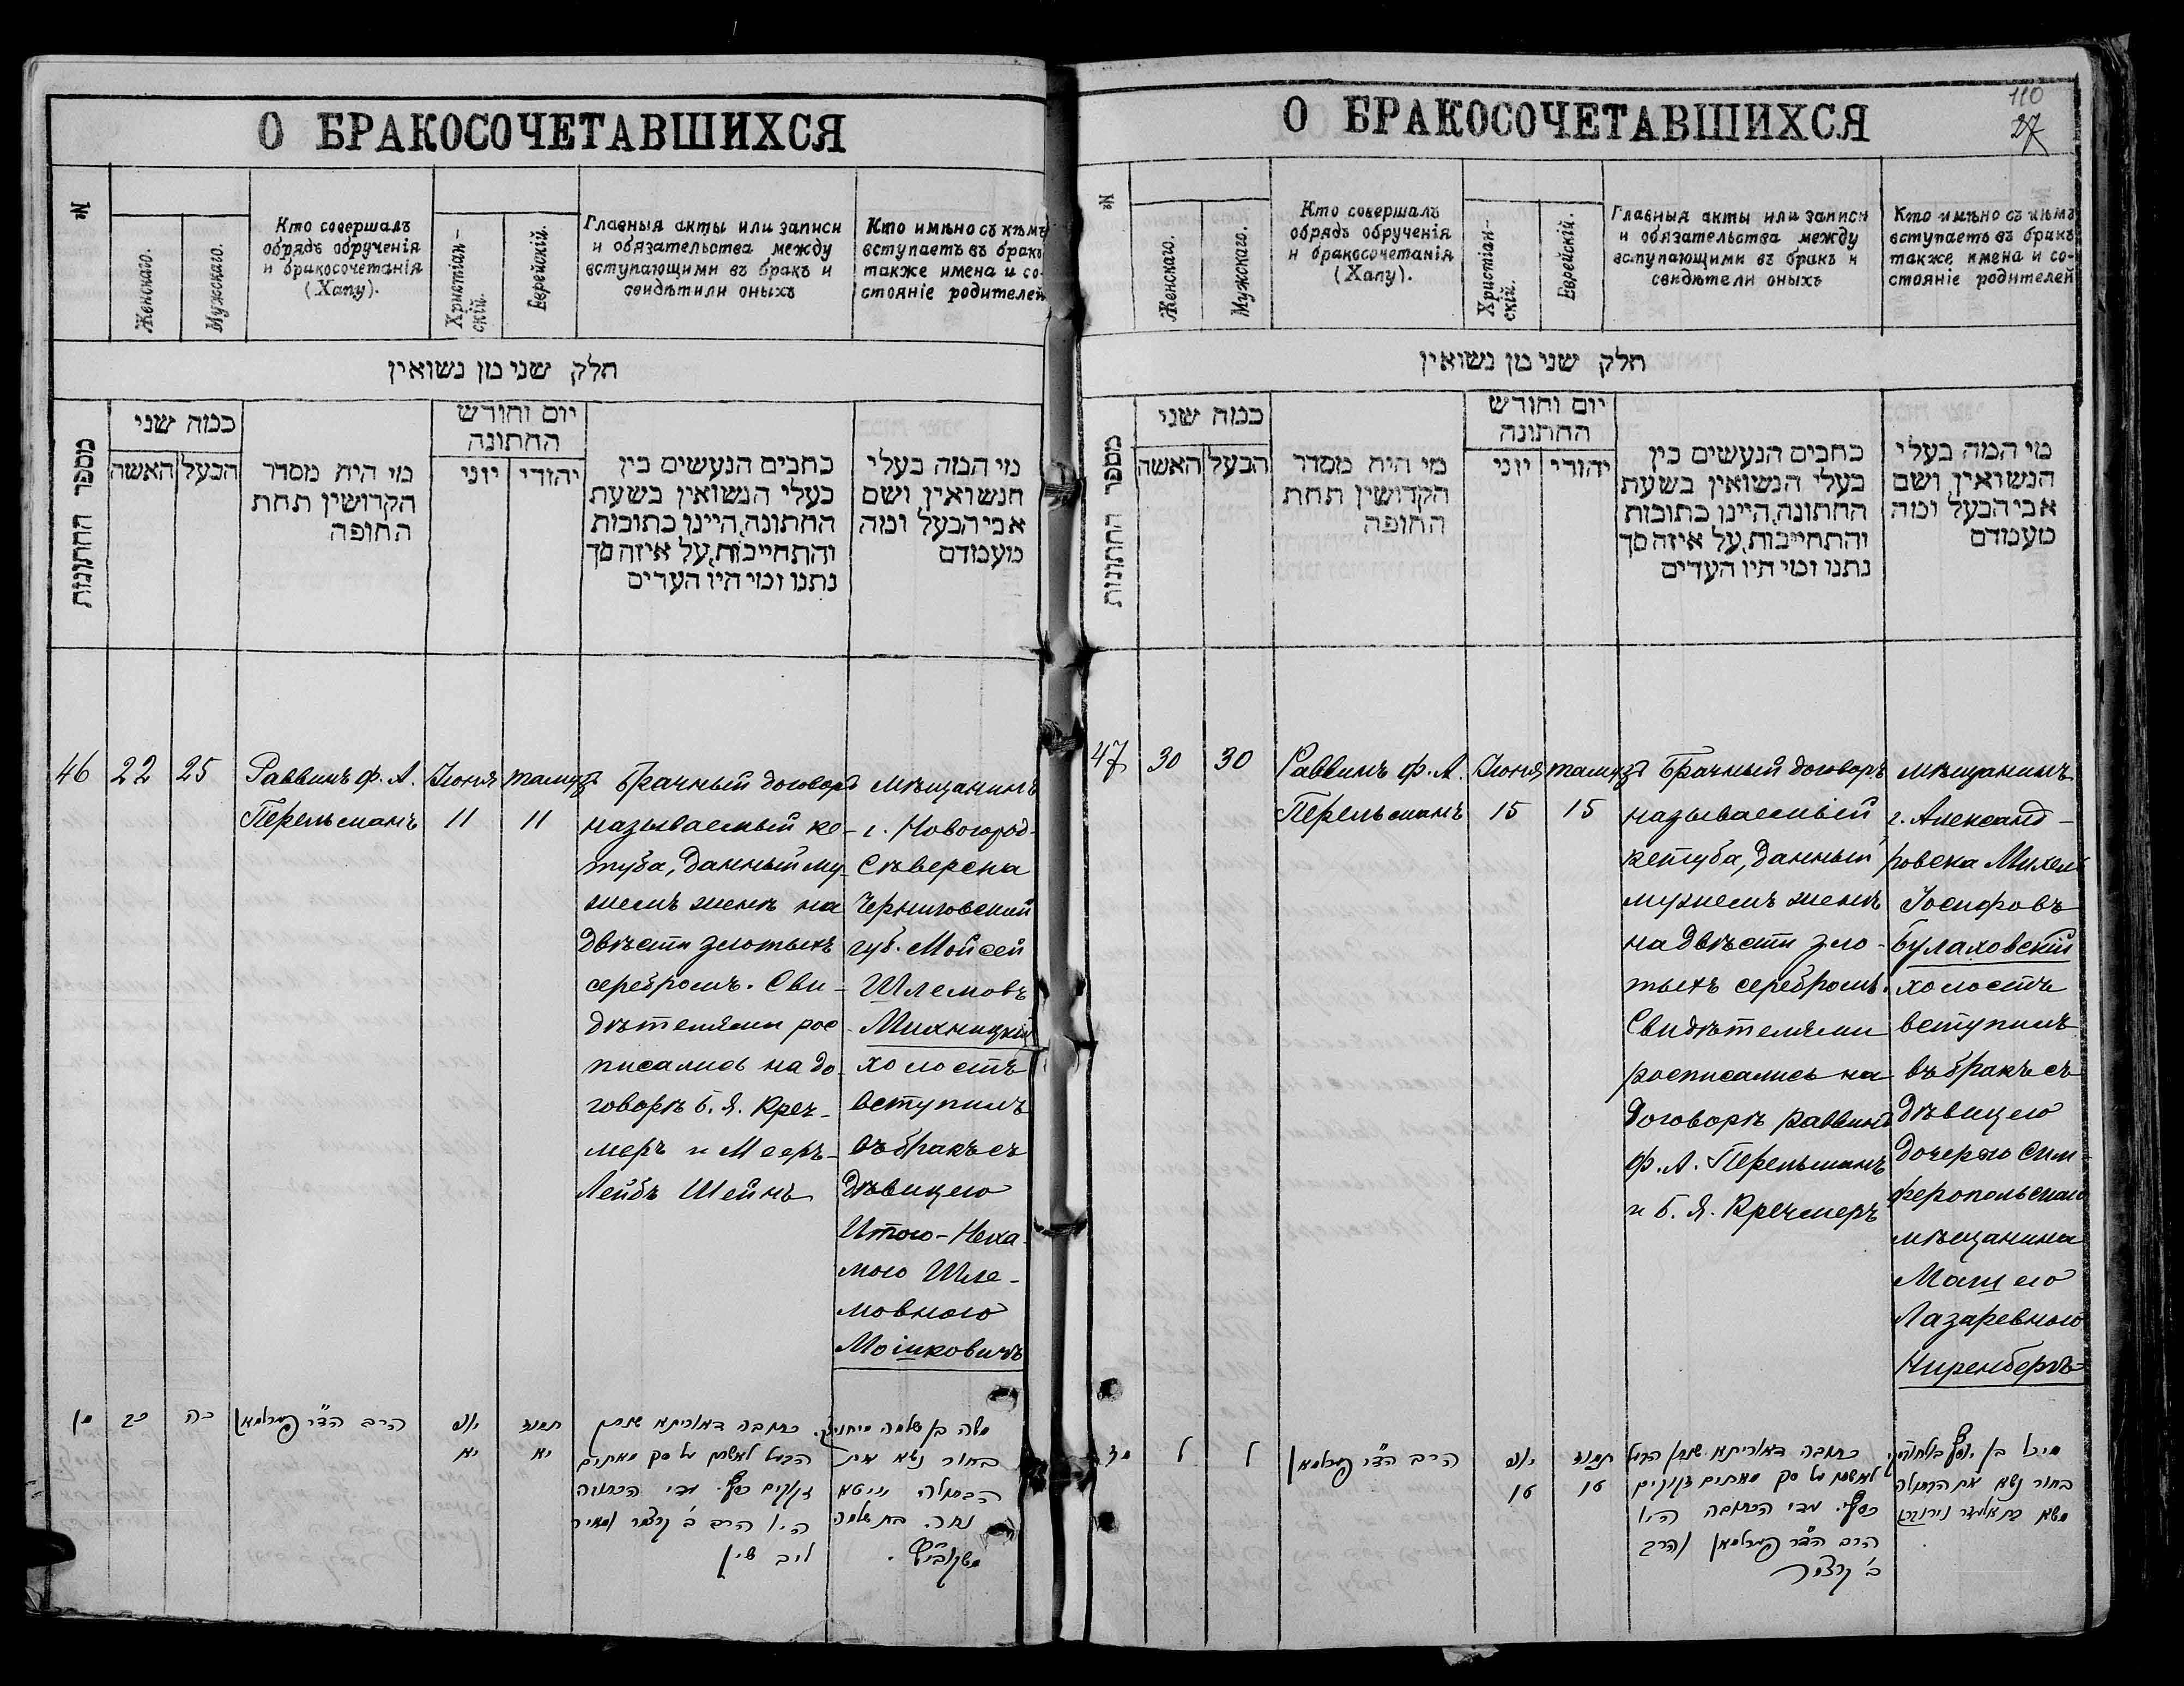 О БРАКОСОЧЕТАВШИХСЯ
№
Женскаго.
Мужскаго.
Кто совершалъ
обрядъ обрученія
и бракосочетанія
(Хапу).
Христіан-
скій.
Еврейскій.
Главныя акты или записи
и обязательства между
вступающими въ бракъ и
свидѣтили оныхъ
Кто имѣно съ кѣмъ
вступаетъ въ бракъ
также имена и со-
стояніе родителей
חלק שני מן נשואין
מספר החתונות
כמה שני
האשה
הבעל
מי היה מסדר
הקדושין תחת
החופה
יום וחודש
החתונה
יוני
יהודי
כתבים הנעשים בין
בעלי הנשואין בשעת
החתונה, היינו כתובות
והתחייבות, על איזה סך
נתנו ומי היו העדים
מי המה בעלי
הנשואין ושם
אבי הבעל ומה
מעמדם
46
22
25
Раввинъ Ф. А.
Перельманъ
Іюня
11
тамузъ
11
Брачный договоръ
называемый ке-
туба, данный му-
жемъ женѣ на
двѣсти злотыхъ
серебромъ. Сви-
дѣтелями рос-
писались на до-
говорѣ Б. Я. Креч-
меръ и Мееръ-
Лейбъ Шейнъ
мѣщанинъ
г. Новогород-
Сѣверска
Черниговской
губ. Мойсей
Шлемовъ
Михницкій
холостъ
вступилъ
въ бракъ съ
дѣвицею
Итою-Неха-
мою Шле-
мовною
Мошковичъ
כב
כה
הרב הד"ר פערלמאן
יוני
יא
תמוז
יא
כתובה דאוריתא שנתן
הבעל לאשתו על סך מאתים
זקוקים כסף. עדי הכתובה
היו הרב ב' קרצמר ומאיר
ליב שיין
משה בן שלמה מיחניצקי
בחור נשא את
הבתולה ייטא
נחה. בת שלמה
משקוביץ.
О БРАКОСОЧЕТАВШИХСЯ
110
27
№
Женскаго.
Мужскаго.
Кто совершалъ
обрядъ обрученія
и бракосочетанія
(Хапу).
Христіан-
скій.
Еврейскій.
Главныя акты или записи
и обязательства между
вступающими въ бракъ и
свидѣтели оныхъ
Кто имѣно съ кѣмъ
вступаетъ въ бракъ
также имена и со-
стояніе родителей
חלק שני מן נשואין
מספר החתונות
כמה שני
האשה
הבעל
מי היה מסדר
הקדושין תחת
החופה
יום וחודש
החתונה
יוני
יהודי
כתבים הנעשים בין
בעלי הנשואין בשעת
החתונה, היינו כתובות
והתחייבות, על איזה סך
נתנו ומי היו העדים
מי המה בעלי
הנשואין ושם
אבי הבעל ומה
מעמדם
47
30
30
Раввинъ Ф. А.
Перельманъ
Іюня
15
тамузъ
15
Брачный договоръ
называемый
кетуба, данный
мужемъ женѣ
на двѣсти зло-
тыхъ серебромъ.
Свидѣтелями
росписались на
договорѣ раввинъ
Ф. А. Перельманъ
и Б. Я. Кречмеръ
мѣщанинъ
г. Александ-
ровска Михель
Іосифовъ
Булаховскій
холостъ
вступилъ
въ бракъ съ
дѣвицею
дочерью Сим-
феропольскаго
мѣщанина
Машею
Лазаревною
Ниренбергъ
מז
ל
ל
הרב הד"ר פערלמאן
יוני
טו
תמוז
טו
כתובה דאוריתא שנתן הבעל
לאשתו על סך מאתים זקוקים
כסף. עדי הכתובה היו
הרב הד"ר פערלמאן והרב
ב' קרצמר
מיכל בן יוסף בולחובסקי
בחור נשא את הבתולה
משא בת אלעזר נירנברג